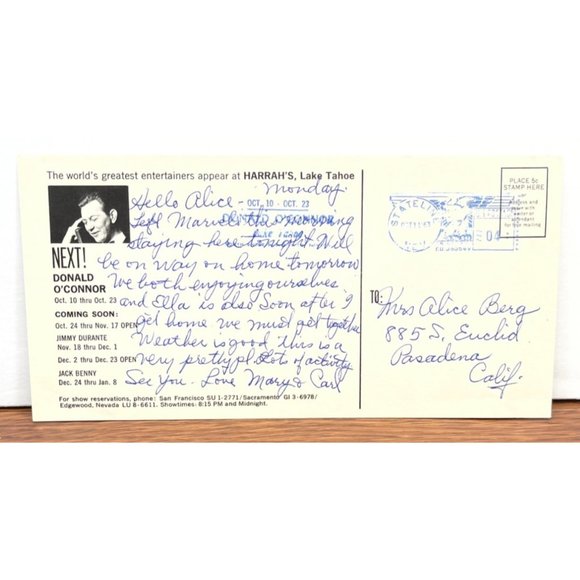 The world's greatest entertainers appear at HARRAH'S, Lake Tahoe
NEXT!
DONALD
O'CONNOR
Oct. 10 thru Oct. 23
COMING SOON:
Oct. 24 thru Nov. 17 OPEN
JIMMY DURANTE
Nov. 18 thru Dec. 1
Dec. 2 thru Dec. 23 OPEN
JACK BENNY
Dec. 24 thru Jan. 8
For show reservations, phone: San Francisco SU 1-2771/Sacramento GI 3-6978/
Edgewood, Nevada LU 8-6611. Showtimes: 8:15 PM and Midnight.
Monday.
Hello Alice -
Left this morning
staying here tonight. Will
be on way on home tomorrow
We both enjoying ourselves.
and Ella is also Soon after I
get home we must get together
Weather is good this is a
very pretty pl. Lots of activity
See You. Love Mary & Carl
OCT. 10 - OCT. 23
DONALD O'CONNOR
LAKE TAHOE
STATELINE
04
PLACE 5¢
STAMP HERE
TO:
Mrs Alice Berg
885 S. Euclid
Pasadena
Calif.